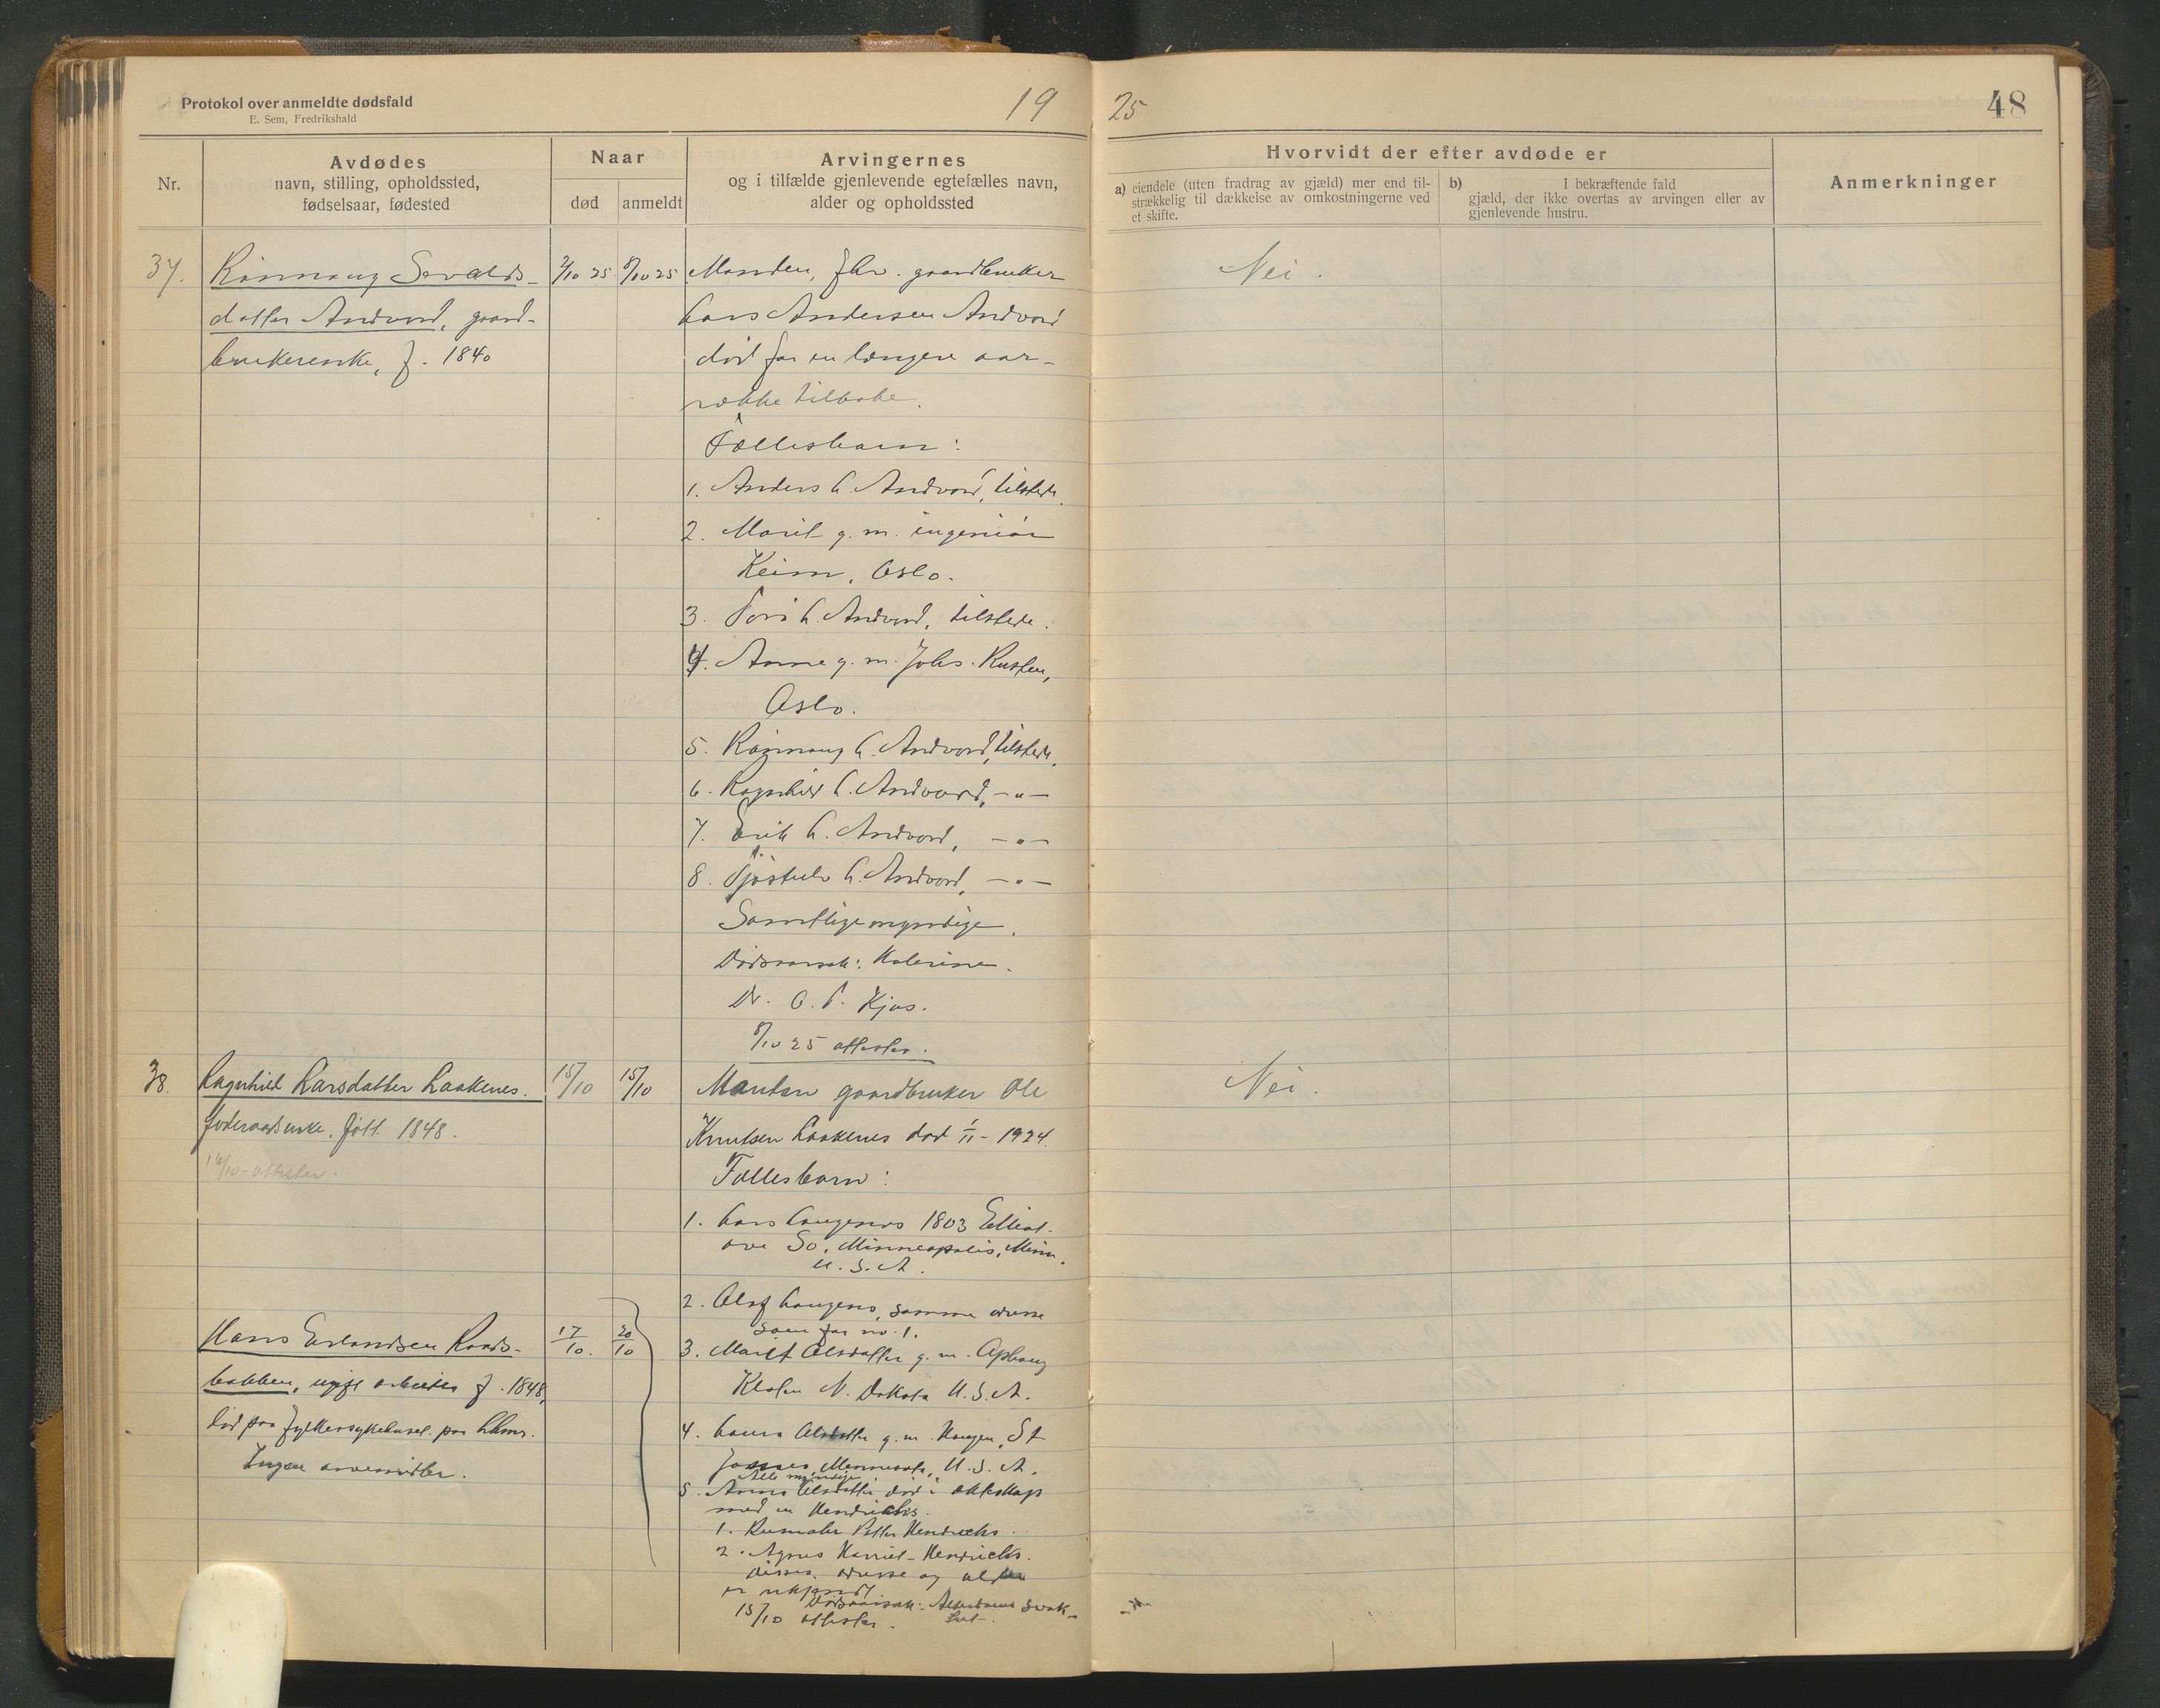 Protokol over anmeldte dødsfald
E. Sem, Fredrikshald
19 25
48
Nr.
Avdødes
navn, stilling, opholdssted,
fødselsaar, fødested
Naar
død
anmeldt
Arvingernes
og i tilfælde gjenlevende egtefælles navn,
alder og opholdssted
Hvorvidt der efter avdøde er
a) eiendele (uten fradrag av gjæld) mer end til-
strækkelig til dækkelse av omkostningerne ved
et skifte.
b) I bekræftende fald
gjæld, der ikke overtas av arvingen eller av
gjenlevende hustru.
Anmerkninger
37.
Rønnaug Sevalds-
datter Andvord, gaard-
brukerenke, f. 1840
2/10 25
8/10 25
Manden, fhv. gaardbruker
Lars Andersen Andvord
død for en længere aar-
række tilbake.
Fællesbarn:
1. Anders L. Andvord, tilstede.
2. Marit g. m. ingeniør
Keim, Oslo.
3. Tora L. Andvord, tilstede.
4. Anne g. m. Johs. Rusten,
Oslo.
5. Rønnaug L. Andvord, tilstede.
6. Ragnhild L. Andvord, -"-
7. Erik L. Andvord, -"-
8. Tjøstulv L. Andvord, -"-
Samtlige myndige.
Dødsaarsak:
Dr. O. T. Kjos.
8/10 25 attester.
Nei.
38.
Ragnhild Larsdatter Laakenes.
foderaadsenke. født 1848.
16/10 - attester.
15/10
15/10
Manden gaardbruker Ole
Knutsen Laakenes død 1/11 - 1924.
Fællesbarn:
1. Lars Laugenes 1803 Elliot
ave So. Minneapolis, Minn.
U. S. A.
2. Olaf Laugenes, samme adresse
som for no. 1.
3. Marit Olsdatter g. m.
N. Dakota U. S. A.
4. Laura Olsdatter g. m. Haugen, St
James, Minnesota, U. S. A.
Alle myndige.
5. Anna Olsdatter død i ekteskap
med en Hendricks.
1. Petter Hendricks.
2. Agnes Harriet Hendricks.
disses adresse og alder
er ukjendt
Dødsaarsak: Alderdoms svak-
het.
15/10 attester.
Nei.
Hans Erlandsen Raads-
bakken, ugift arbeider f. 1848,
død paa fylkessykehuset paa Lhmr.
Ingen arvemidler.
17/10.
20/10